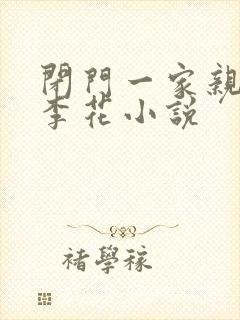 閉門一家親
李花小說
褚學稼